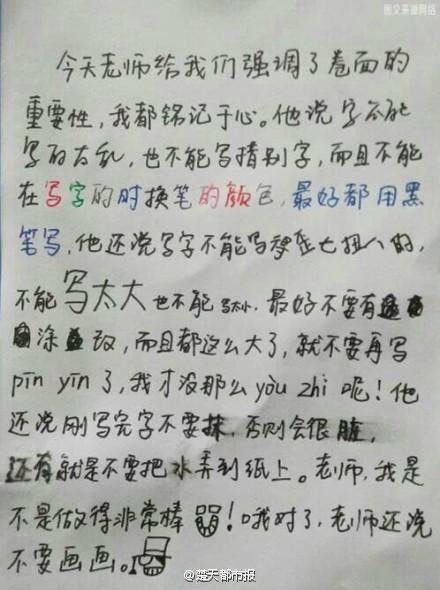 图文来源网络
今天老师给我们强调了卷面的
重要性，我都铭记于心。他说字不能
写的太乱，也不能写措别字，而且不能
在写字的时换笔的颜色，最好都用黑
笔写，他还说写字不能写歪七扭八的，
不能写太大也不能写太小，最好不要有
涂改，而且都这么大了，就不要再写
pīn yīn了，我才没那么yòu zhi呢！他
还说刚写完字不要抹，否则会很脏，
还有就是不要把水弄到纸上。老师，我是
不是做得非常棒！哦对了，老师还说
不要画画。
@楚天都市报